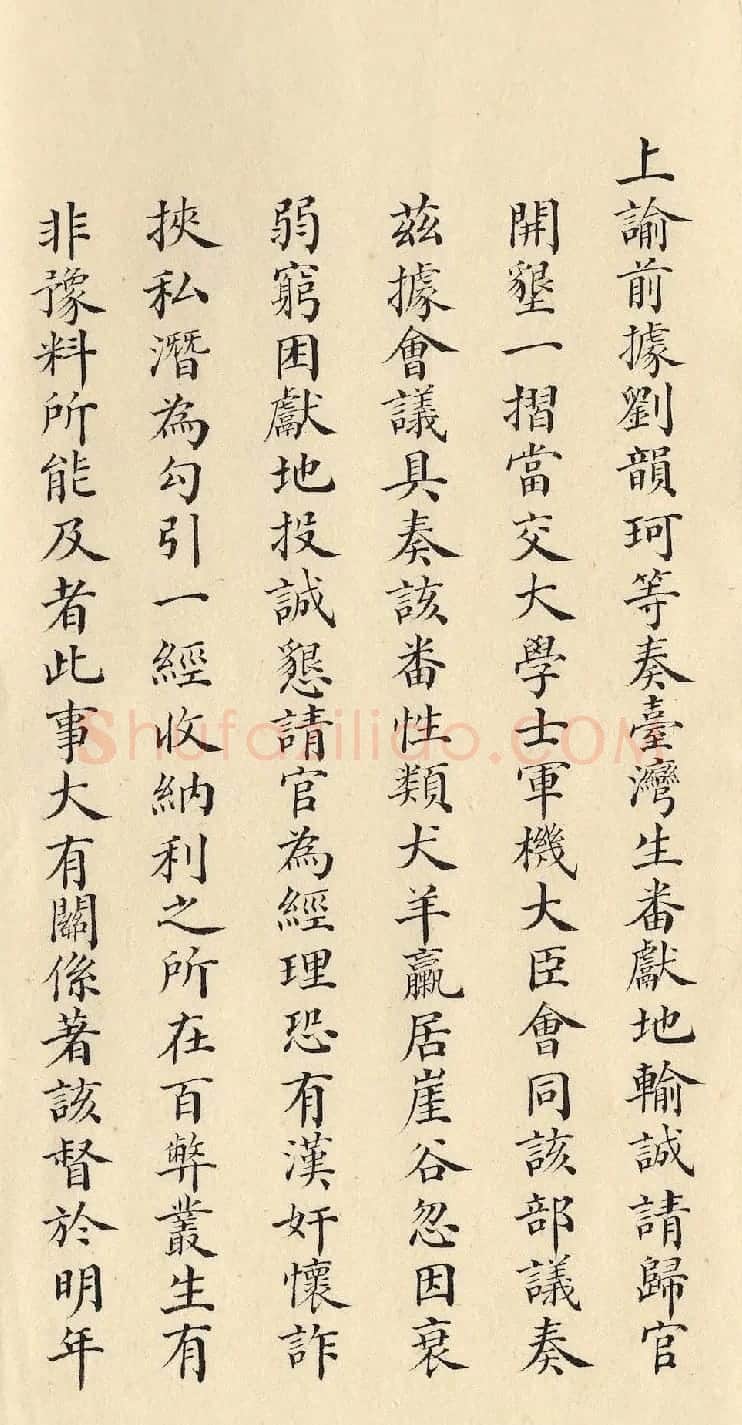 上諭前據劉韻珂等奏臺灣生番獻地輸誠請歸官
開墾一摺當交大學士軍機大臣會同該部議奏
茲據會議具奏該番性類犬羊贏居崖谷忽因衰
弱窮困獻地投誠懇請官為經理恐有漢奸懷詐
挾私潛為勾引一經收納利之所在百弊叢生有
非豫料所能及者此事大有關係著該督於明年
Shufaziliao.COM